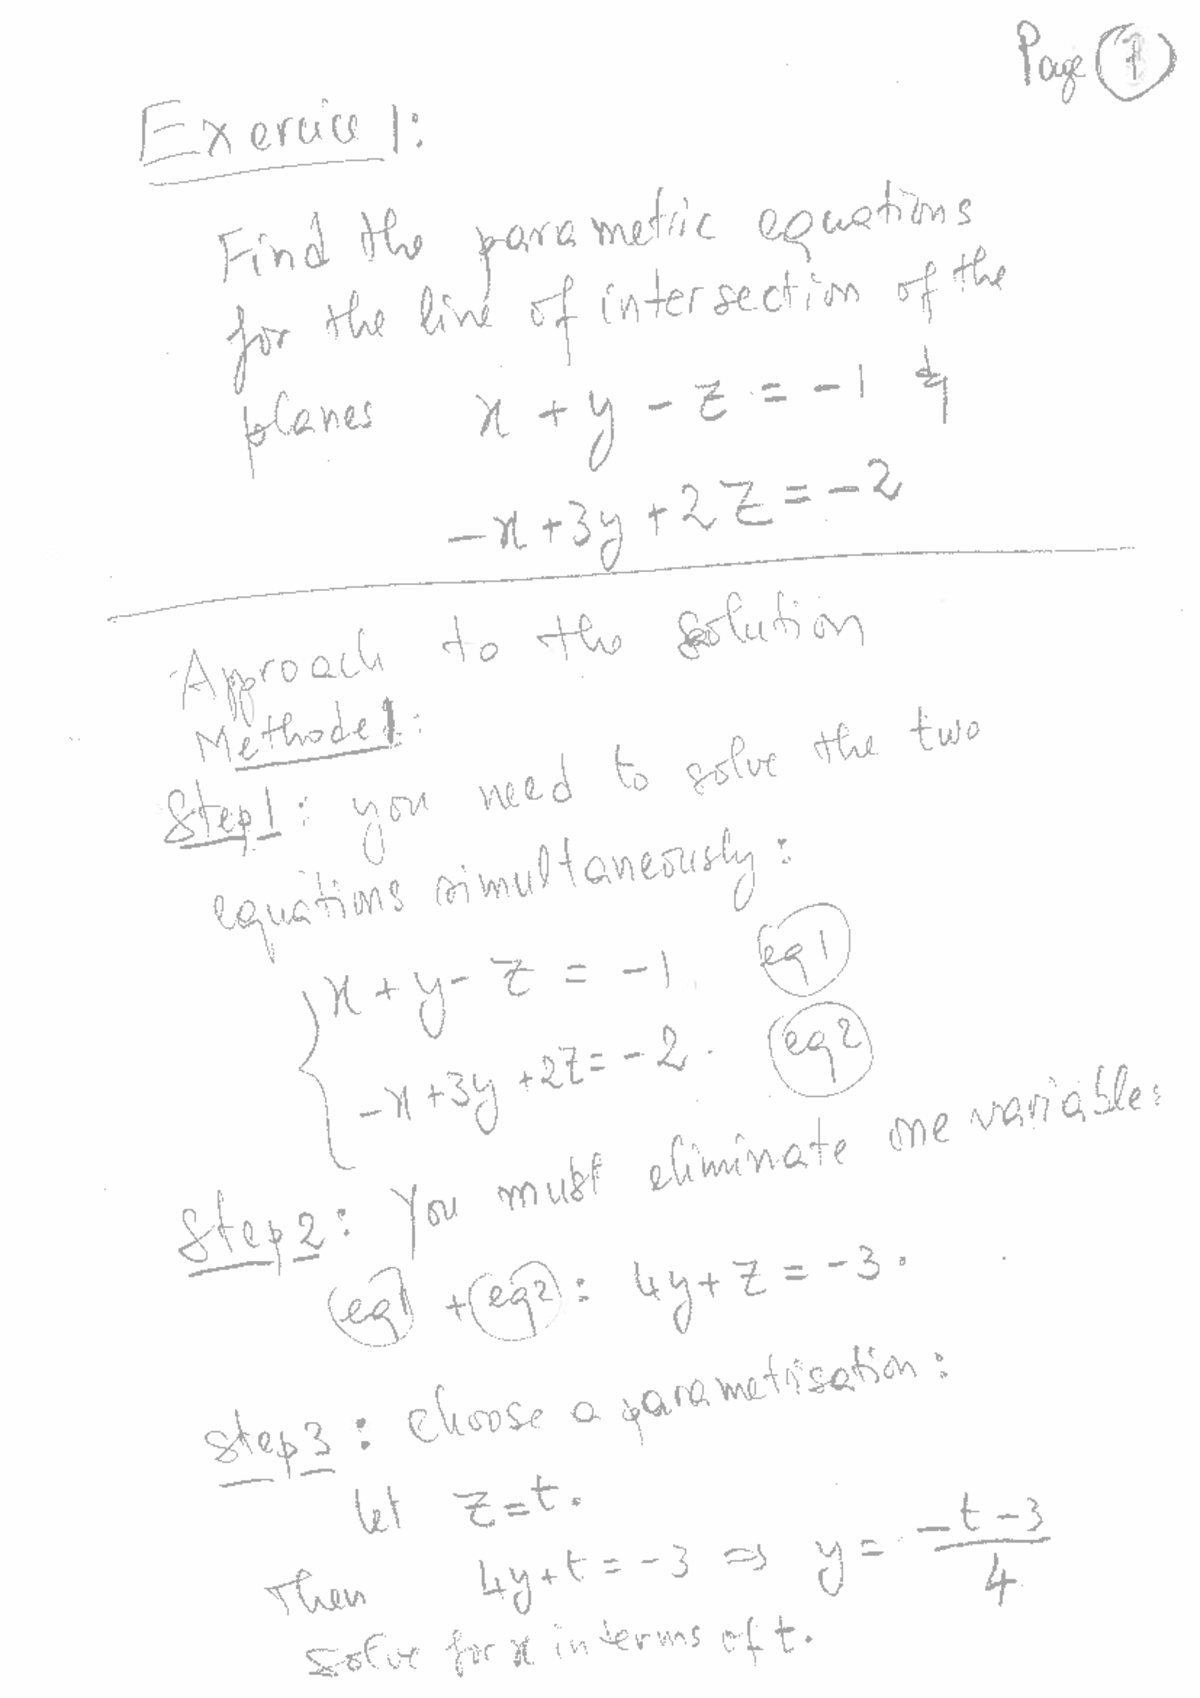 Page 7
Exercice 1:
Find the parametric equations
for the line of intersection of the
planes x + y - z = -1 &
-x + 3y + 2z = -2
Approach to the solution
Methode 1:
Step 1: you need to solve the two
equations simultaneously:
x + y - z = -1. eq1
-x + 3y + 2z = -2. eq2
Step 2: You must eliminate one variable:
eq1 + eq2: 4y + z = -3.
Step 3: choose a parametrisation:
let z = t.
Then 4y + t = -3 ⇒ y = (-t - 3)/4
solve for x in terms of t.